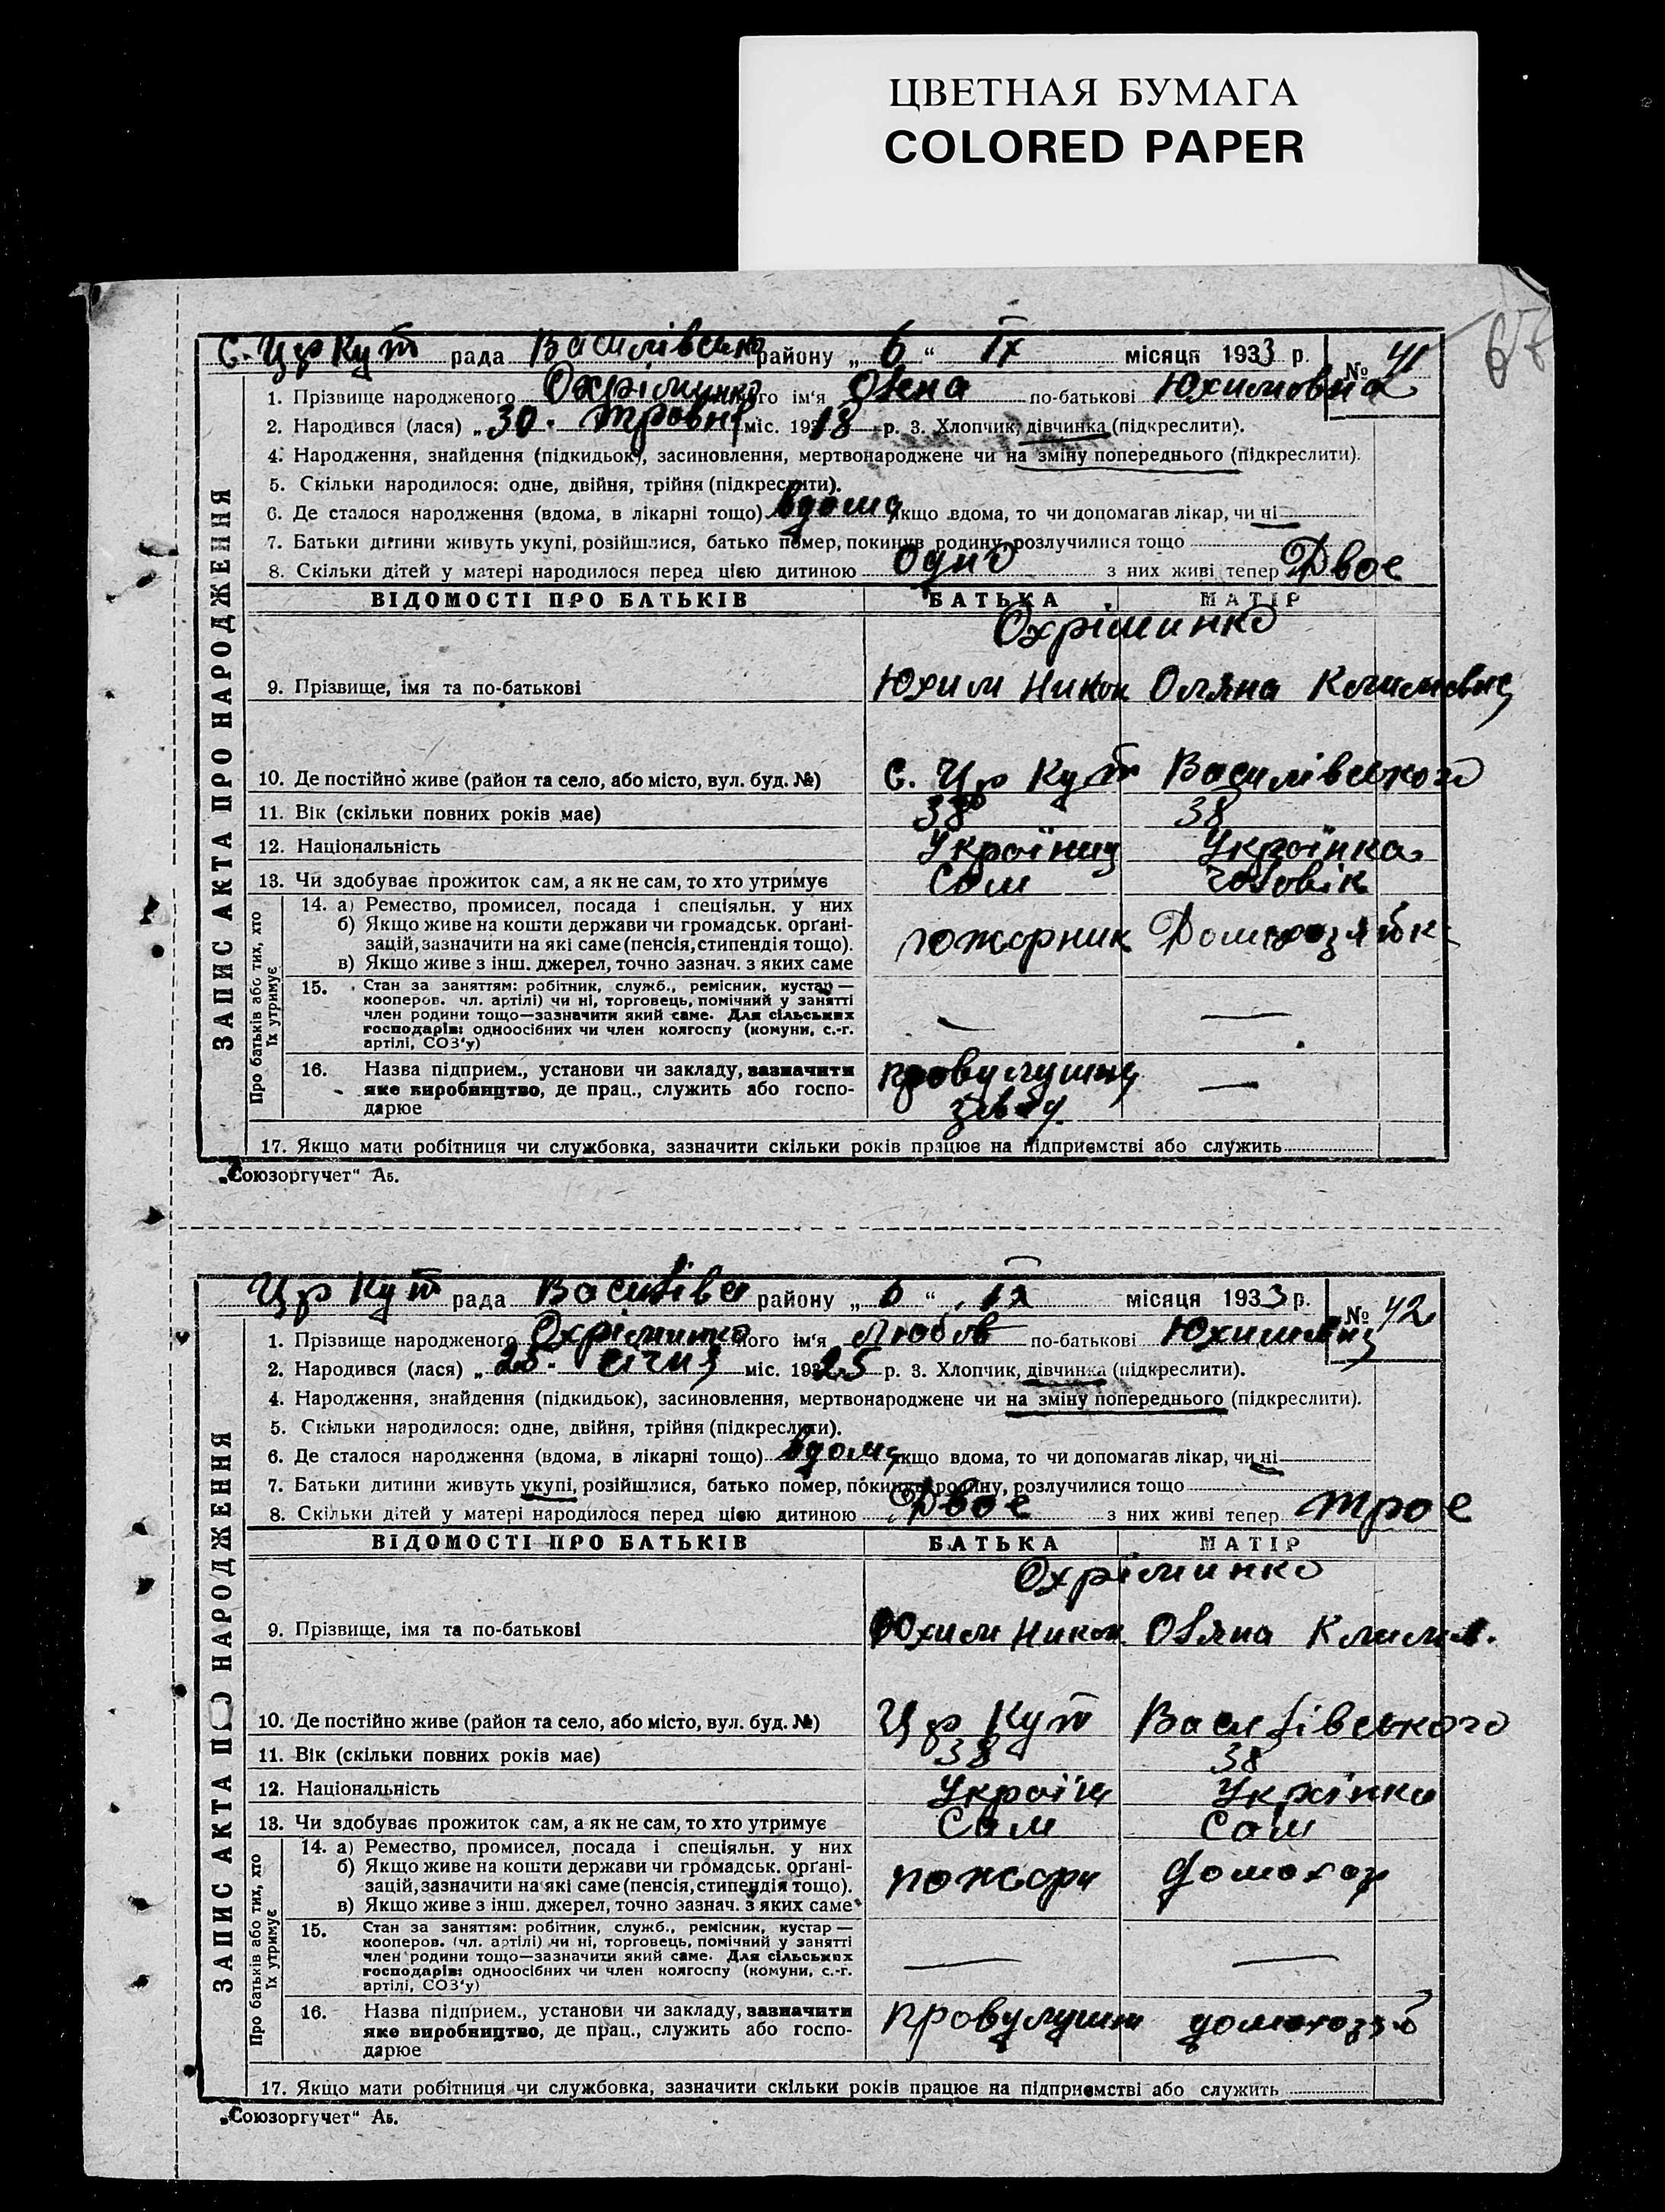 ЦВЕТНАЯ БУМАГА
COLORED PAPER
С. Цр Кут рада Василівсько району „ 6 “ ІХ місяця 1933 р. № 41
1. Прізвище народженого Охріминко ного ім'я Олена по-батькові Юхимовна
2. Народився (лася) „ 30. травня міс. 1918 р. 3. Хлопчик, дівчинка (підкреслити).
4. Народження, знайдення (підкидьок), засиновлення, мертвонароджене чи на зміну попереднього (підкреслити).
5. Скільки народилося: одне, двійня, трійня (підкреслити).
6. Де сталося народження (вдома, в лікарні тощо) вдома якщо вдома, то чи допомагав лікар, чи ні
7. Батьки дитини живуть укупі, розійшлися, батько помер, покинув родину, розлучилися тощо
8. Скільки дітей у матері народилося перед цією дитиною одно з них живі тепер Двое
ВІДОМОСТІ ПРО БАТЬКІВ БАТЬКА МАТІР
Охріминко
9. Прізвище, імя та по-батькові Юхим Никон Оляна
10. Де постійно живе (район та село, або місто, вул. буд. №) С. Цр Кут Василівського
11. Вік (скільки повних років має) 38 38
12. Національність Україниц Українка
13. Чи здобуває прожиток сам, а як не сам, то хто утримує Сам Чоловік
14. а) Ремество, промисел, посада і спеціяльн. у них
б) Якщо живе на кошти держави чи громадськ. орґані-
зацій, зазначити на які саме (пенсія, стипендія тощо). пожарник
в) Якщо живе з інш. джерел, точно зазнач. з яких саме
15. Стан за заняттям: робітник, служб., ремісник, кустар —
кооперов. чл. артілі) чи ні, торговець, помічний у занятті
член родини тощо—зазначити який саме. Для сільських
господарів: одноосібних чи член колгоспу (комуни, с.-г.
артілі, СОЗ'у) — —
16. Назва підприєм., установи чи закладу, зазначити —
яке виробництво, де прац., служить або госпо-
дарює
17. Якщо мати робітниця чи службовка, зазначити скільки років працює на підприємстві або служить
ЗАПИС АКТА ПРО НАРОДЖЕННЯ
Про батьків або тих, хто їх утримує
„Союзоргучет“ Аб.
Цр Кут рада Василівс району „ 6 “ ІХ місяця 1933 р. № 42
1. Прізвище народженого Охріминко ного ім'я Любов по-батькові
2. Народився (лася) „ 25. січня міс. 1925 р. 3. Хлопчик, дівчинка (підкреслити).
4. Народження, знайдення (підкидьок), засиновлення, мертвонароджене чи на зміну попереднього (підкреслити).
5. Скільки народилося: одне, двійня, трійня (підкреслити).
6. Де сталося народження (вдома, в лікарні тощо) вдома якщо вдома, то чи допомагав лікар, чи ні
7. Батьки дитини живуть укупі, розійшлися, батько помер, покинув родину, розлучилися тощо
8. Скільки дітей у матері народилося перед цією дитиною Двое з них живі тепер трое
ВІДОМОСТІ ПРО БАТЬКІВ БАТЬКА МАТІР
Охріминко
9. Прізвище, імя та по-батькові Юхим Никон Оляна
10. Де постійно живе (район та село, або місто, вул. буд. №) Цр Кут Василівського
11. Вік (скільки повних років має) 38 38
12. Національність Українка
13. Чи здобуває прожиток сам, а як не сам, то хто утримує Сам Сам
14. а) Ремество, промисел, посада і спеціяльн. у них
б) Якщо живе на кошти держави чи громадськ. орґані-
зацій, зазначити на які саме (пенсія, стипендія тощо). пожарн домохоз
в) Якщо живе з інш. джерел, точно зазнач. з яких саме
15. Стан за заняттям: робітник, служб., ремісник, кустар —
кооперов. (чл. артілі) чи ні, торговець, помічний у занятті
член родини тощо—зазначити який саме. Для сільських
господарів: одноосібних чи член колгоспу (комуни, с.-г.
артілі, СОЗ'у) — —
16. Назва підприєм., установи чи закладу, зазначити
яке виробництво, де прац., служить або госпо-
дарює
17. Якщо мати робітниця чи службовка, зазначити скільки років працює на підприємстві або служить
ЗАПИС АКТА ПРО НАРОДЖЕННЯ
Про батьків або тих, хто їх утримує
„Союзоргучет“ Аб.